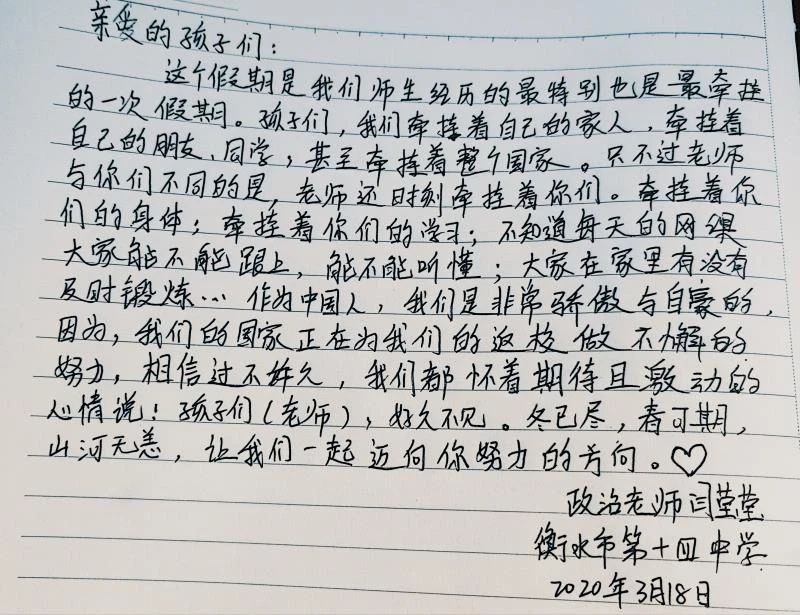 亲爱的孩子们:
这个假期是我们师生经历的最特别也是最牵挂
的一次假期。孩子们,我们牵挂着自己的家人,牵挂着
自己的朋友、同学;甚至牵挂着整个国家。只不过老师
与你们不同的是,老师还时刻牵挂着你们。牵挂着你
们的身体;牵挂着你们的学习;不知道每天的网课
大家能不能跟上,能不能听懂;大家在家里有没有
及时锻炼… 作为中国人,我们是非常骄傲与自豪的,
因为,我们的国家正在为我们的返校做不懈的
努力,相信过不许久,我们都怀着期待且激动的
心情说:孩子们(老师),好久不见。冬已尽,春可期,
山河无恙,让我们一起迈向你努力的方向。♡
政治老师闫莹莹
衡水市第十四中学
2020年3月18日